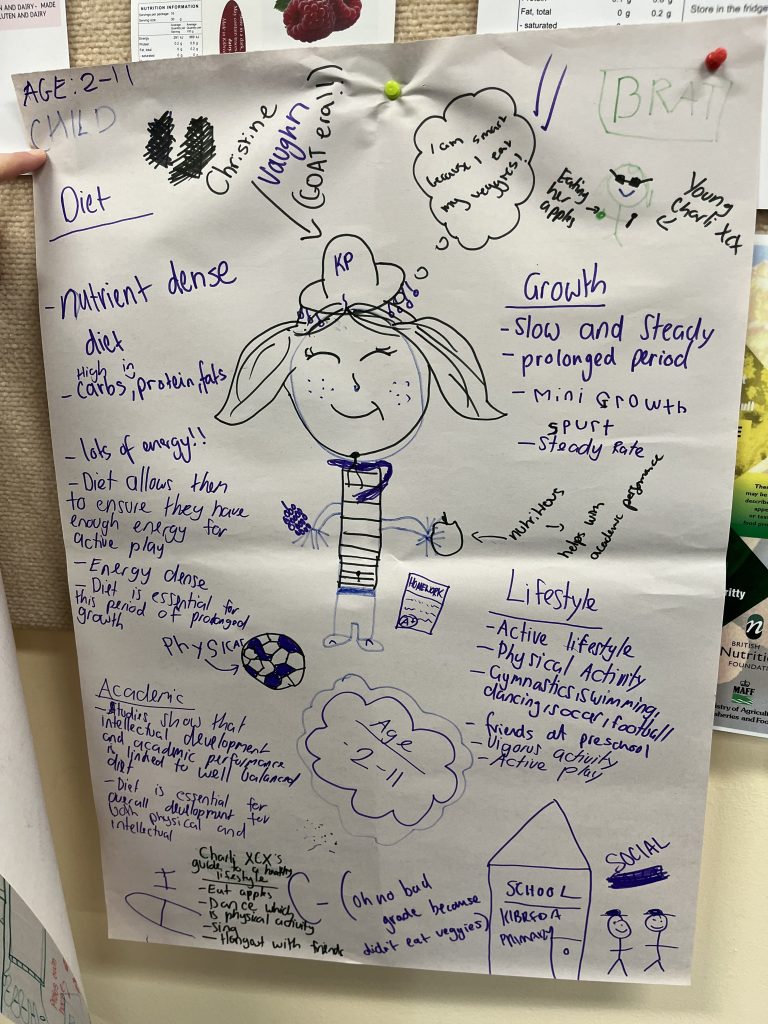 AGE: 2-11
CHILD
Christine
Vaughn
(GOAT era!!)
I am smart
because I eat
my veggies!
BRAT
Eating
her
apples
Young
Charli XCX
Diet
- nutrient dense
diet
High in
- carbs, protein, fats
- lots of energy!!
- Diet allows them
to ensure they have
enough energy for
active play
- Energy dense
- Diet is essential for
this period of prolonged
growth
KP
Growth
- Slow and steady
- prolonged period
- Mini Growth
spurt
- Steady Rate
nutritious
helps with
academic performance
HOMEWORK
A+
PHYSICAL
Lifestyle
- Active lifestyle
- Physical Activity
- Gymnastics, swimming,
dancing, soccer, football
- friends at preschool
- Vigorus activity
- Active play
Academic
- Studies show that
intellectual development
and academic performance
is linked to well balanced
diet
- Diet is essential for
overall development for
both physical and
intellectual
Age
- 2-11
Charli XCX's
guide to a healthy
lifestyle
- Eat apples
- Dance which
is physical activity
- sing
- Hangout with friends
C - (oh no bad
grade because
didn't eat veggies)
SCHOOL
PRIMARY
SOCIAL
NUTRITION INFORMATION
Fat, total
- saturated
0 g
0.2 g
Store in the fridge
BRITISH
Nutrition
FOUNDATION
MAFF